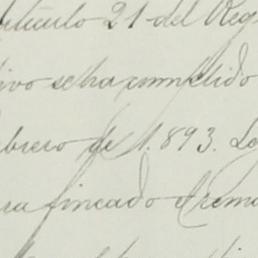 artículo 21 del Reg
tivo se ha cometido
ebrero de 1.893. Lo
ra fincado